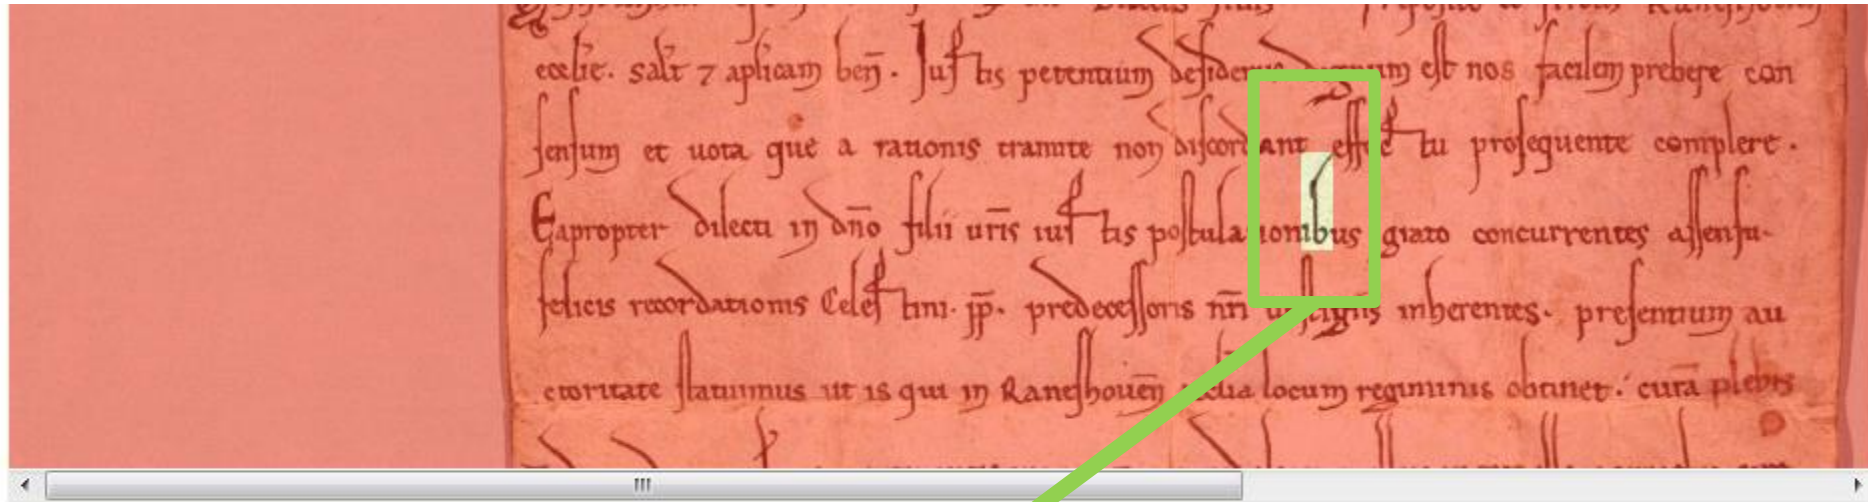 ecclie. salt ⁊ aplicam ben̄. Iustis petentium desideriis dignum est nos facilem prebere con
sensum et uota que a rationis tramite non discordant effectu prosequente complere.
Eapropter dilecti in dn̄o filii ur̄is iustis postulationibus grato concurrentes assensu.
felicis recordationis Celestini. pp̄. predecessoris nr̄i uestigiis inherentes. presentium au
ctoritate statuimus ut is qui in Raneshouen̄ locum regiminis obtinet. curā plebis